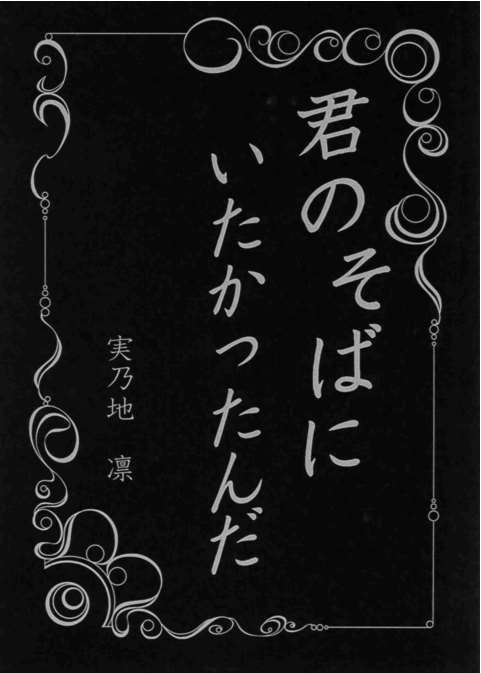 君のそばに
いたかったんだ
実乃地 凛